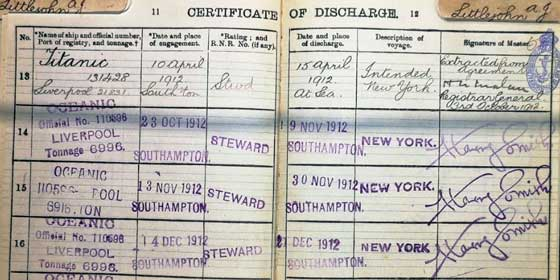 Littlejohn A.J.
11 CERTIFICATE OF DISCHARGE. 12
Littlejohn A.J.
No. *Name of ship and official number, Port of registry, and tonnage.† *Date and place of engagement. *Rating; and R.N.R. No. (if any). Date and place of discharge. Description of voyage. Signature of Master
13
Titanic
131428
Liverpool 21831.
10 April
1912
South'ton
Stwd
15 April
1912
At Sea.
Intended
New York.
Extracted from
Agreement
Registrar General
14
OCEANIC
Official No. 110596
LIVERPOOL
Tonnage 6996.
23 OCT 1912
SOUTHAMPTON.
STEWARD
9 NOV 1912
NEW YORK.
Harry Smith
15
OCEANIC
POOL
13 NOV 1912
SOUTHAMPTON.
STEWARD
30 NOV 1912
NEW YORK.
Harry Smith
16
OCEANIC
Official No. 110596
LIVERPOOL
Tonnage 6996.
14 DEC 1912
SOUTHAMPTON.
STEWARD
DEC 1912
NEW YORK.
Harry Smith
OCEANIC